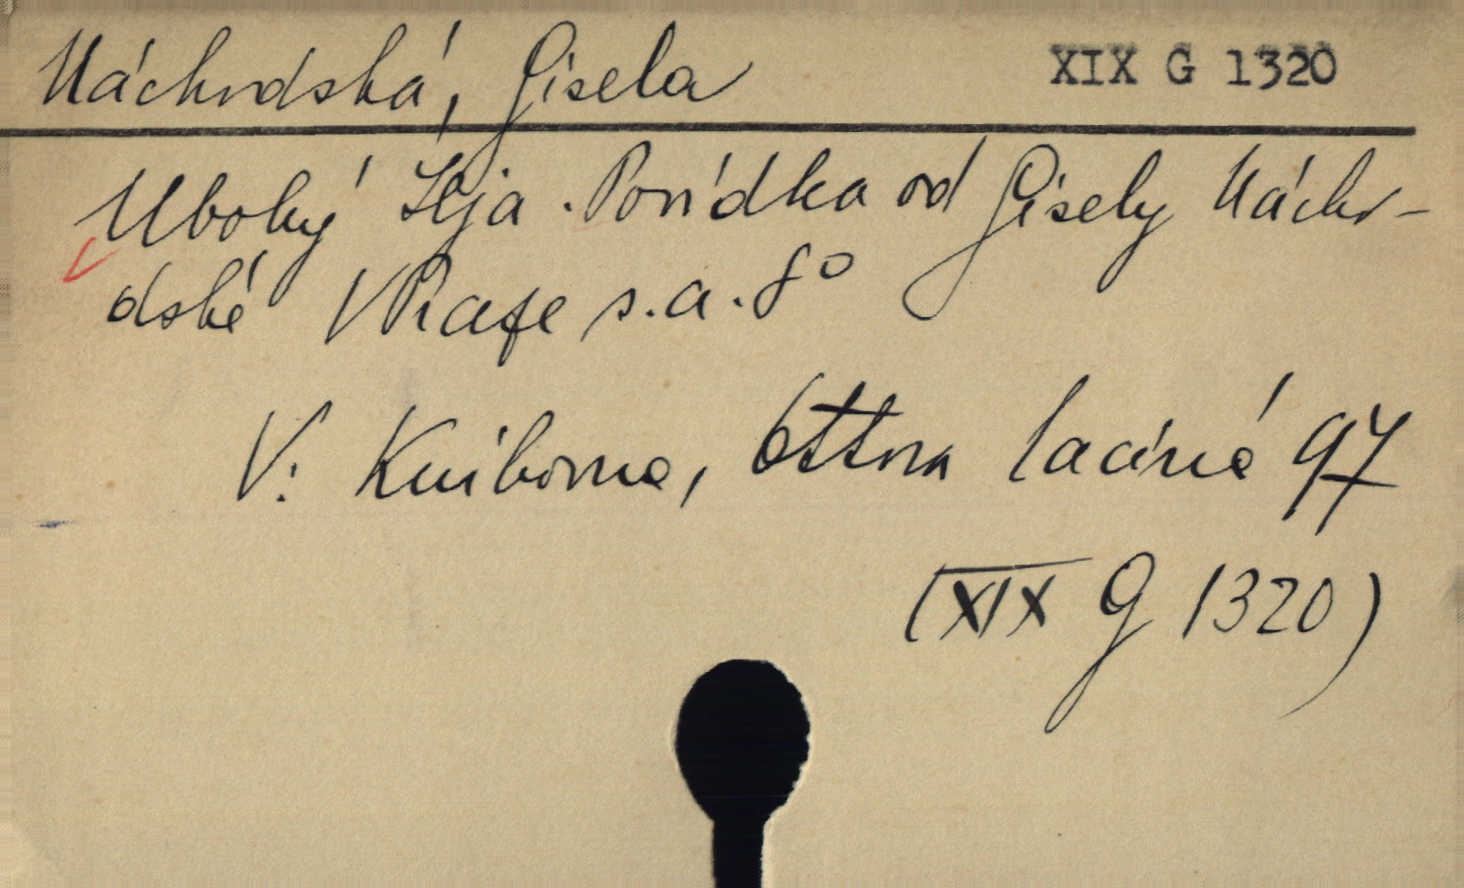 Náchodská, Gisela
XIX G 1320
Ubohý Ilja. Povídka od Gisely Nácho-
dské V Praze s.a. 8°
V: Knihovna, Ottova laciná 97
(XIX G 1320)